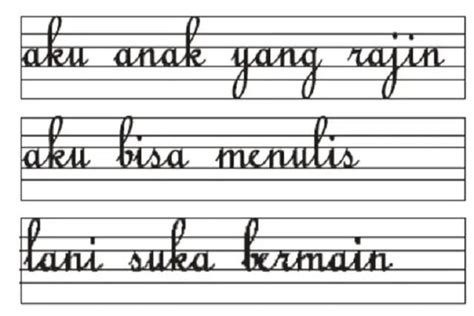 aku anak yang rajin
aku bisa menulis
lani suka bermain